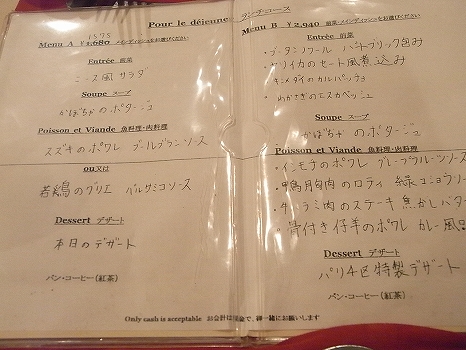 Pour le déjeuner ランチ・コース
1575
Menu A ¥1,680 メインディッシュをお選びください
Entrée 前菜
ニース風サラダ
Soupe スープ
かぼちゃのポタージュ
Poisson et Viande 魚料理・肉料理
スズキのポワレ ブールブランソース
ou 又は
若鶏のグリエ バルサミコソース
Dessert デザート
本日のデザート
パン・コーヒー(紅茶)
Menu B ¥2,940 前菜・メインディッシュをお選びください
Entrée 前菜
・ブータンノワール パートブリック包み
・ヤリイカのセート風煮込み
・キンメダイのカルパッチョ
・わかさぎのエスカベッシュ
Soupe スープ
かぼちゃのポタージュ
Poisson et Viande 魚料理・肉料理
・イシモチのポワレ ブレ・ブラン・ソース
・鴨胸肉のロティ 緑コショウソー
のステーキ 焦がしバター
・骨付き仔羊のポワレ カレー風
Dessert デザート
パリ4区特製デザート
パン・コーヒー(紅茶)
Only cash is acceptable お会計は現金で、御一緒にお願いします